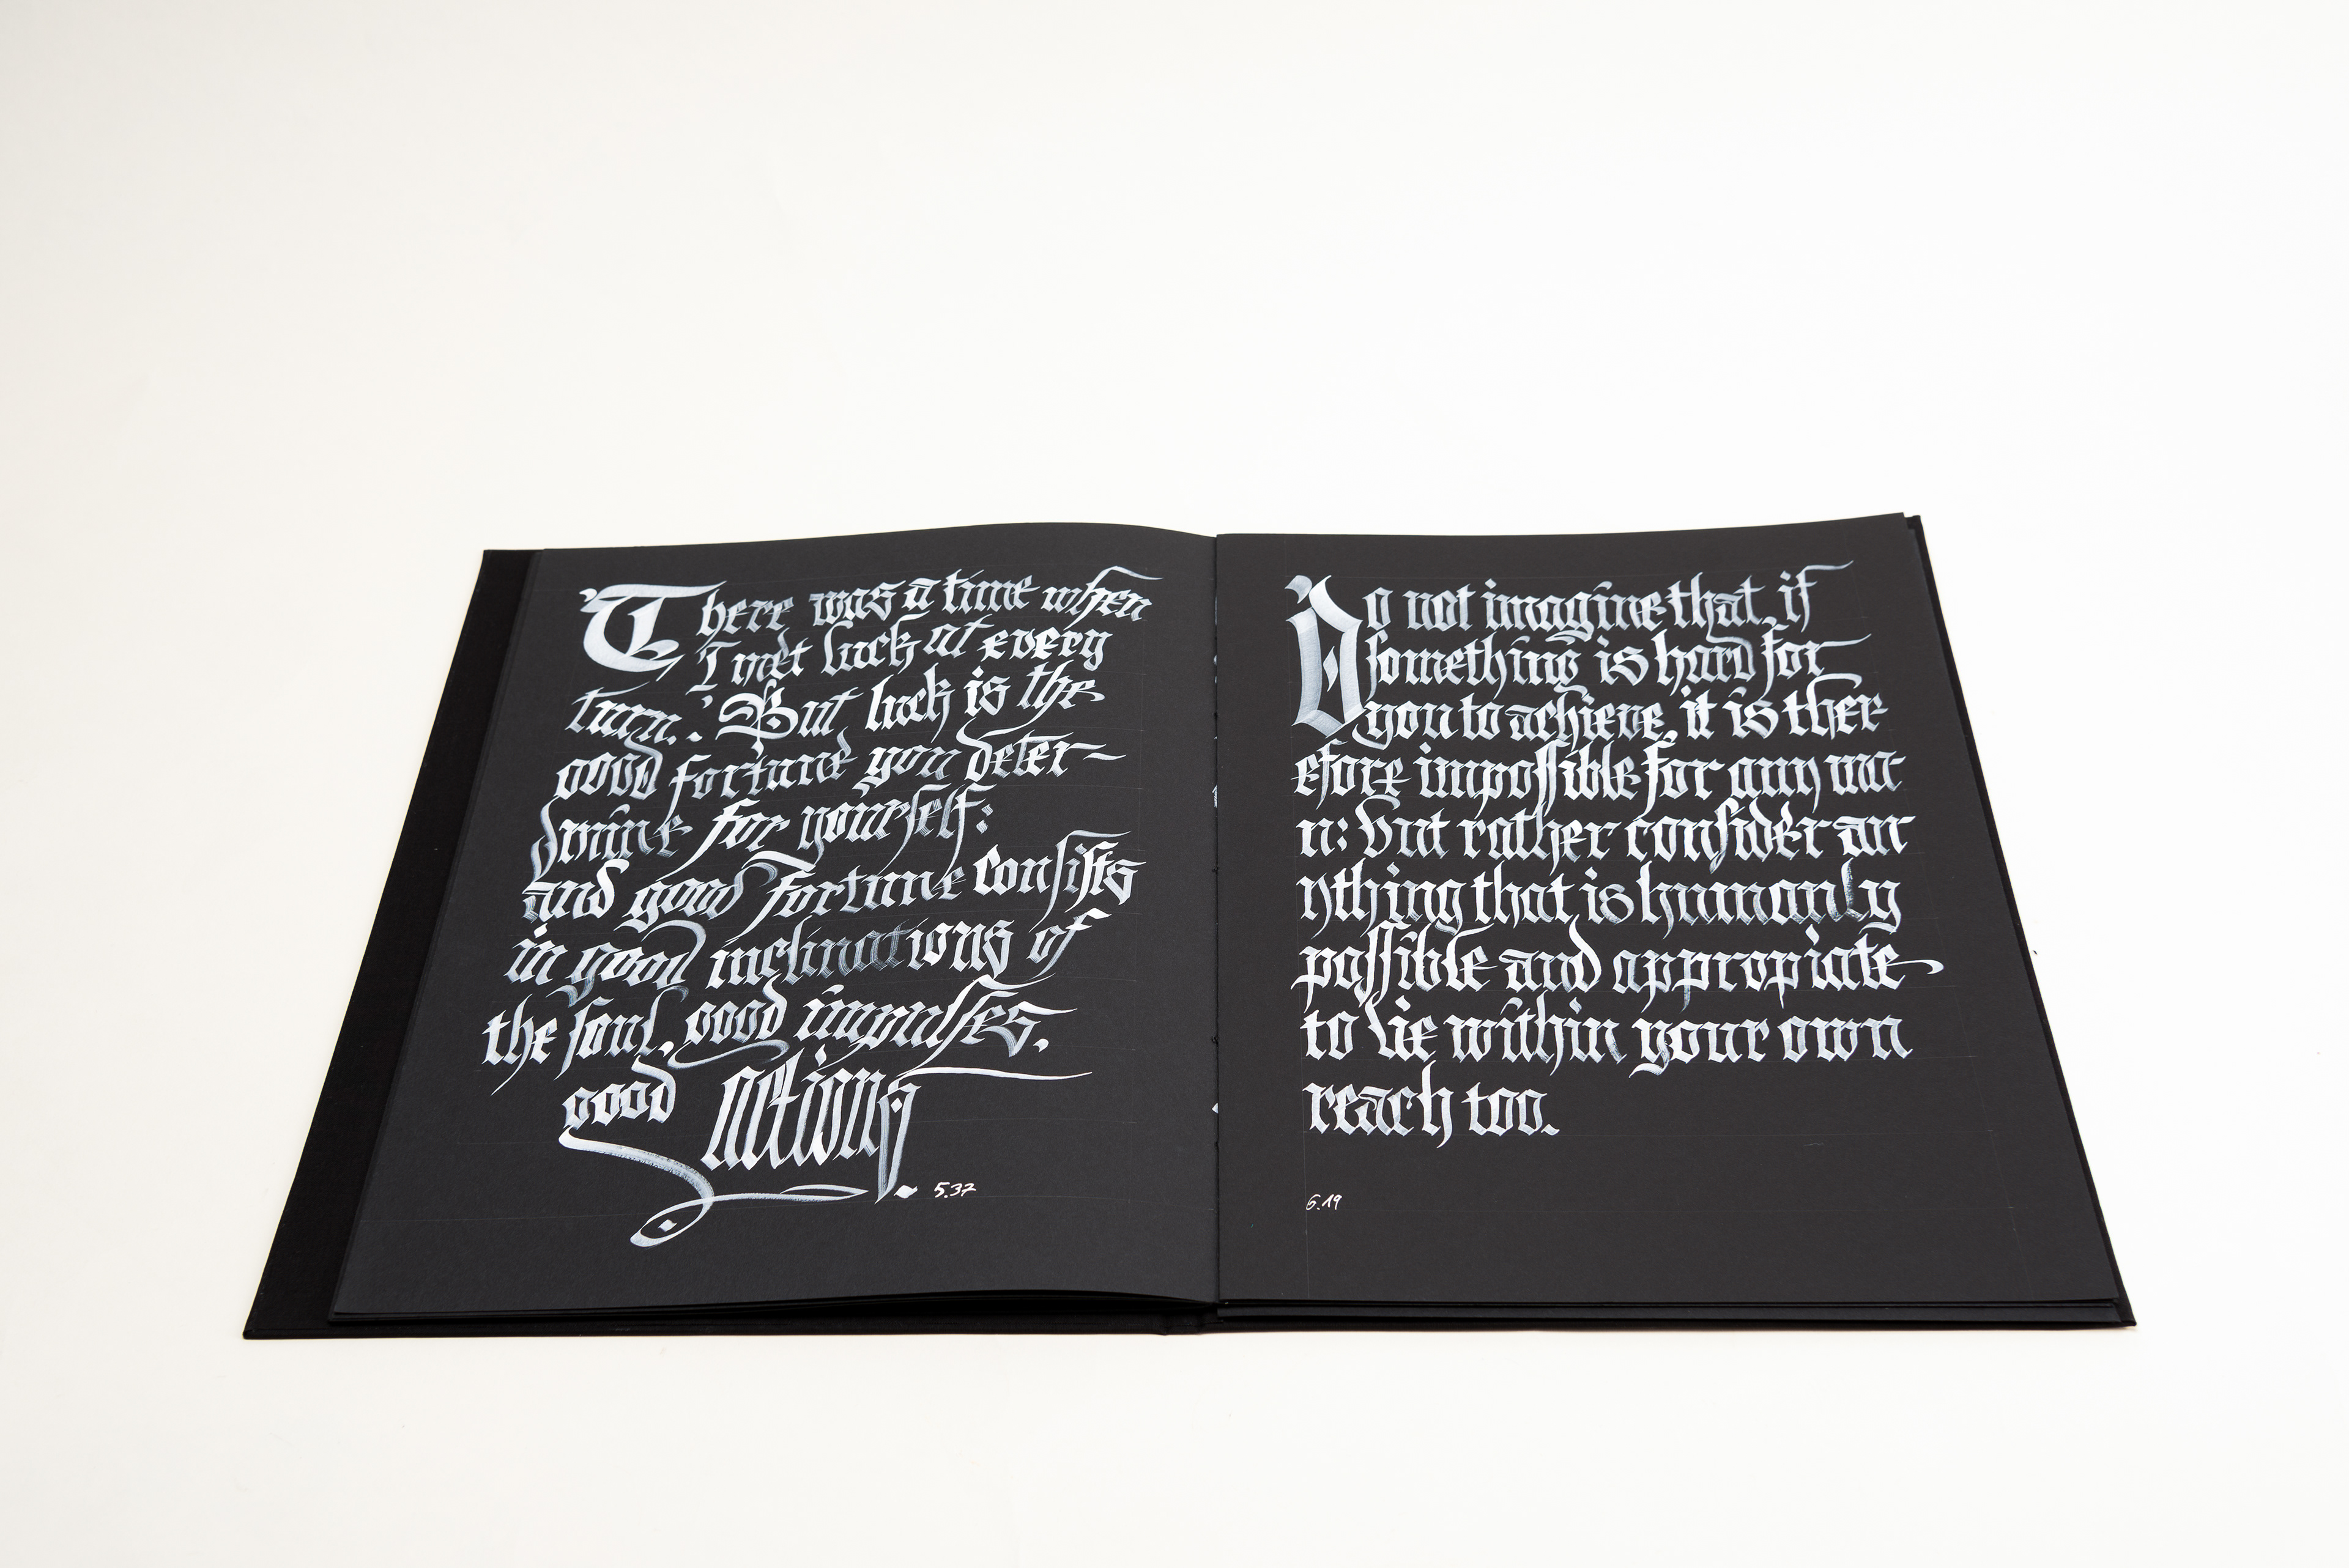 There was a time when
I met luck at every
turn.' But luck is the
good fortune you deter-
mine for yourself:
and good fortune consists
in good inclinations of
the soul, good impulses,
good actions.
5.37
Do not imagine that, if
something is hard for
you to achieve, it is ther-
efore impossible for any ma-
n: but rather consider an
ything that is humanly
possible and appropiate
to lie within your own
reach too.
6.19